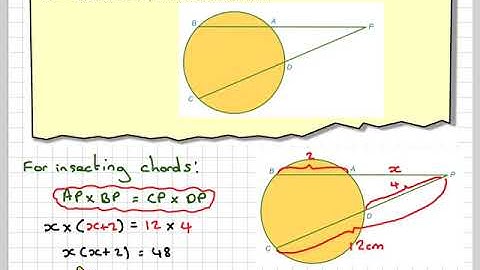 B
A
P
D
C
For insecting chords:
AP x BP = CP x DP
x x (x+2) = 12 x 4
x(x+2) = 48
2
x
B
A
P
4
D
C
12cm